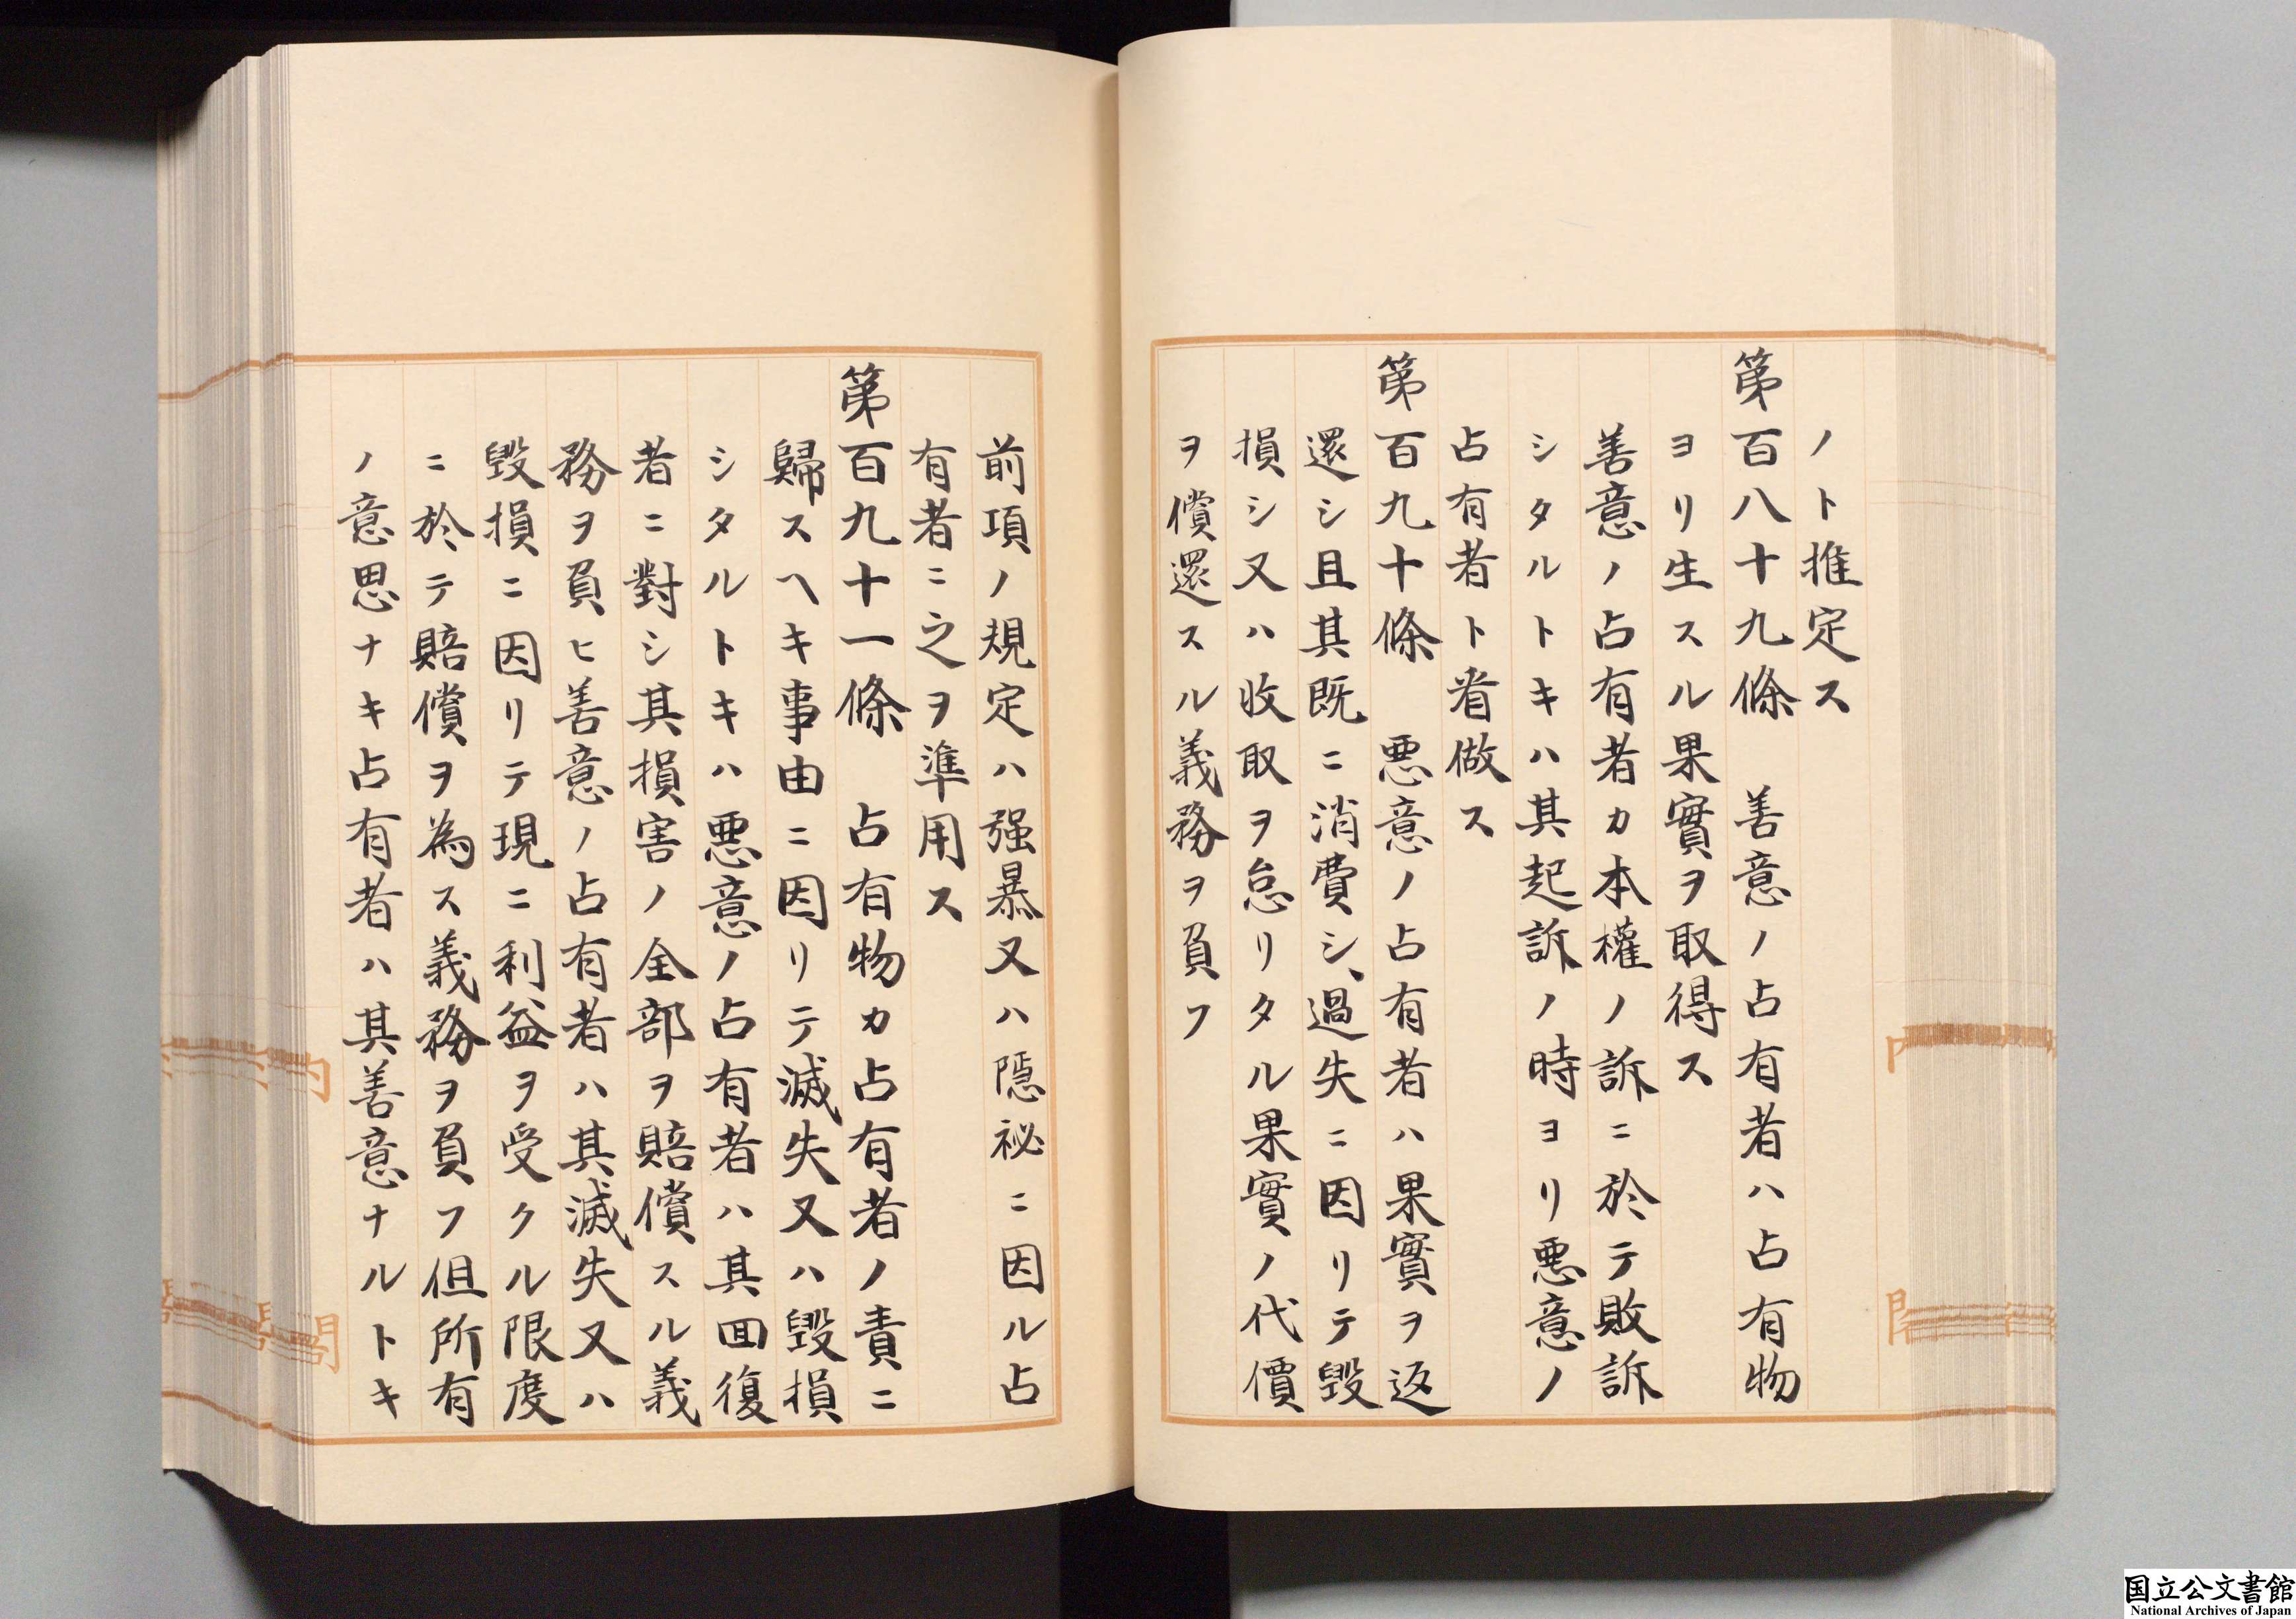 ノト推定ス
第百八十九條　善意ノ占有者ハ占有物
ヨリ生スル果實ヲ取得ス
善意ノ占有者カ本權ノ訴ニ於テ敗訴
シタルトキハ其起訴ノ時ヨリ悪意ノ
占有者ト看做ス
第百九十條　悪意ノ占有者ハ果實ヲ返
還シ且其既ニ消費シ、過失ニ因リテ毀
損シ又ハ收取ヲ怠リタル果實ノ代價
ヲ償還スル義務ヲ負フ
前項ノ規定ハ强暴又ハ隱祕ニ因ル占
有者ニ之ヲ準用ス
第百九十一條　占有物カ占有者ノ責ニ
歸スヘキ事由ニ因リテ滅失又ハ毀損
シタルトキハ悪意ノ占有者ハ其回復
者ニ對シ其損害ノ全部ヲ賠償スル義
務ヲ負ヒ善意ノ占有者ハ其滅失又ハ
毀損ニ因リテ現ニ利益ヲ受クル限度
ニ於テ賠償ヲ為ス義務ヲ負フ但所有
ノ意思ナキ占有者ハ其善意ナルトキ
内
閣
国立公文書館
National Archives of Japan